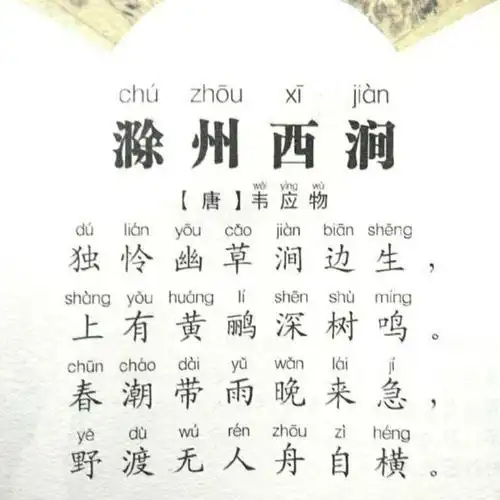 chú zhōu xī jiàn
滁州西涧
wéi yìng wù
【唐】韦应物
dú lián yōu cǎo jiàn biān shēng
独怜幽草涧边生，
shàng yǒu huáng lí shēn shù míng
上有黄鹂深树鸣。
chūn cháo dài yǔ wǎn lái jí
春潮带雨晚来急，
yě dù wú rén zhōu zì héng
野渡无人舟自横。